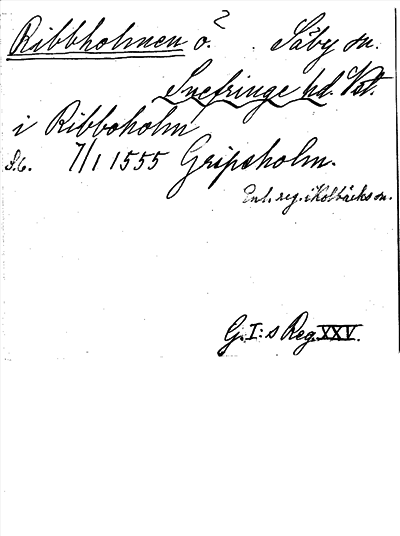 Ribbholmen ö. ? Säby sn.
Snefringe hd. Vstl.
i Ribboholm
S. 6. 7/1 1555 Gripsholm.
Enl. reg. i Kolbäcks sn.
G. I:s Reg. XXV.